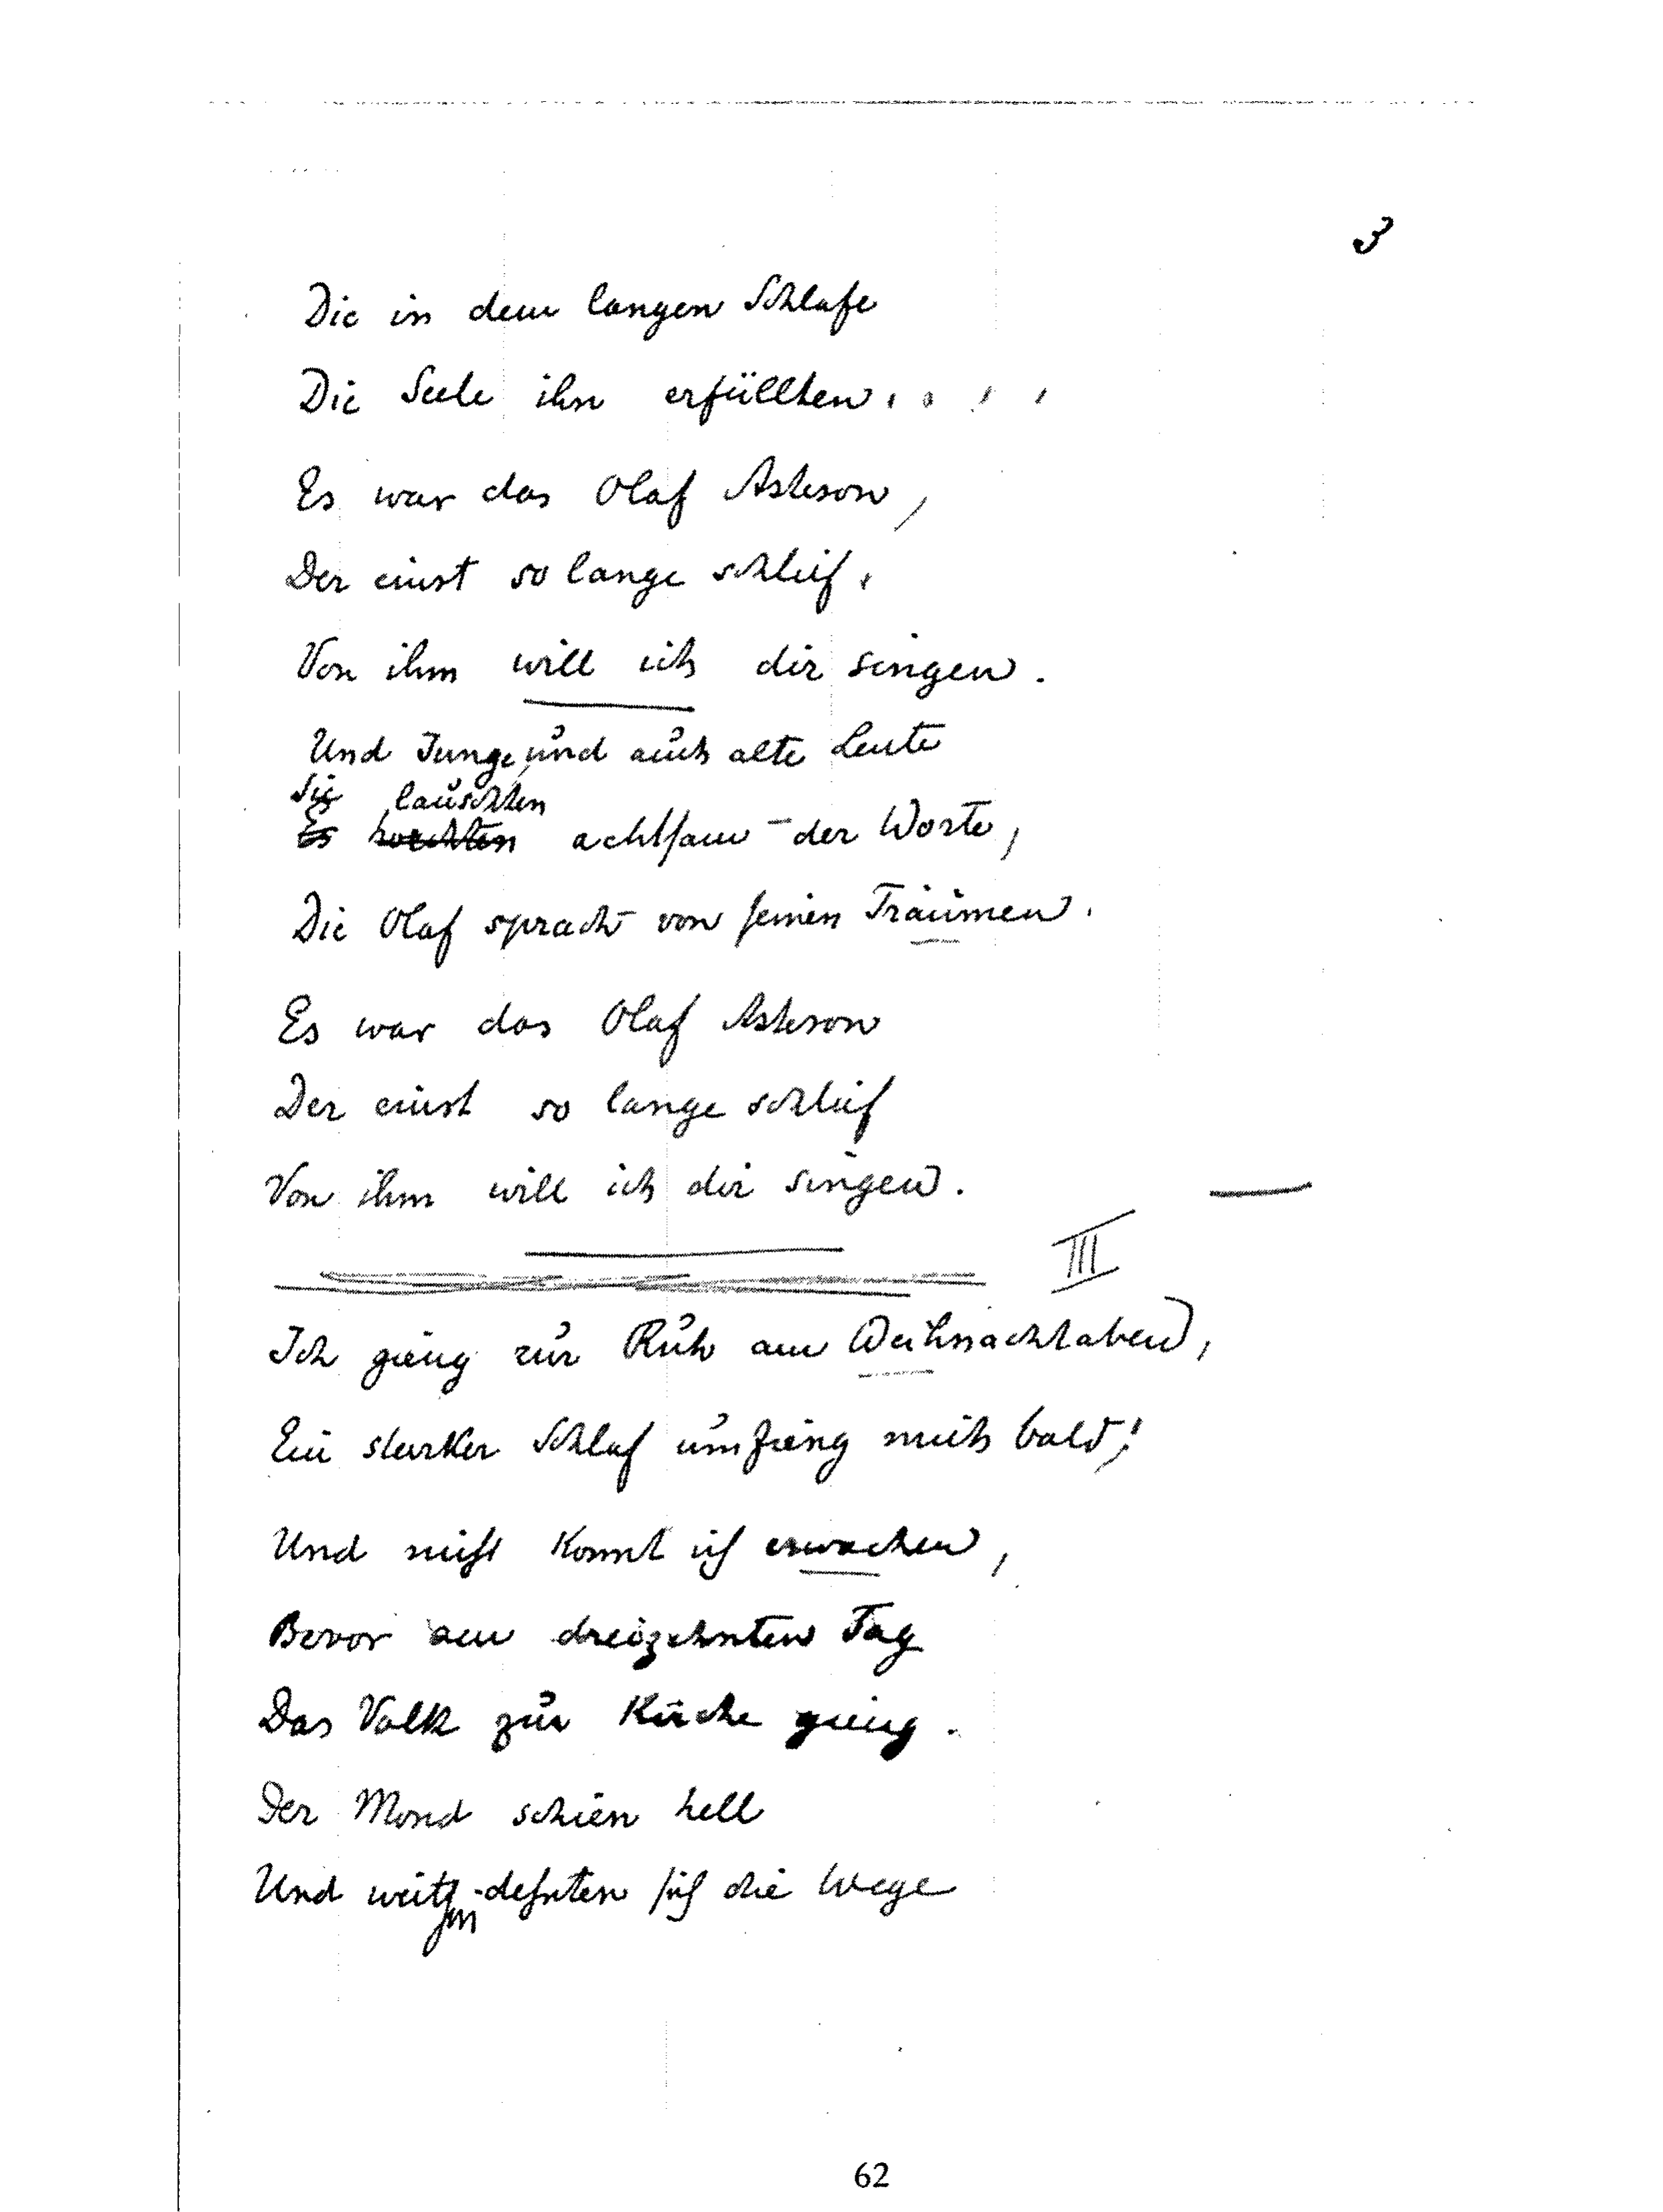 3
Die in dem langen Schlafe
Die Seele ihm erfüllten. . . .
Es war das Olaf Åsteson,
Der einst so lange schlief.
Von ihm will ich dir singen.
Und Junge, und auch alte Leute
Sie lauschten
Es horchten achtsam der Worte,
Die Olaf sprach von seinen Träumen.
Es war das Olaf Åsteson
Der einst so lange schlief
Von ihm will ich dir singen.
III
Ich gieng zur Ruh am Weihnachtabend,
Ein starker Schlaf umfieng mich bald;
Und nicht konnt ich erwachen,
Bevor am dreizehnten Tag
Das Volk zur Kirche gieng.
Der Mond schien hell
Und weithin dehnten sich die Wege
62